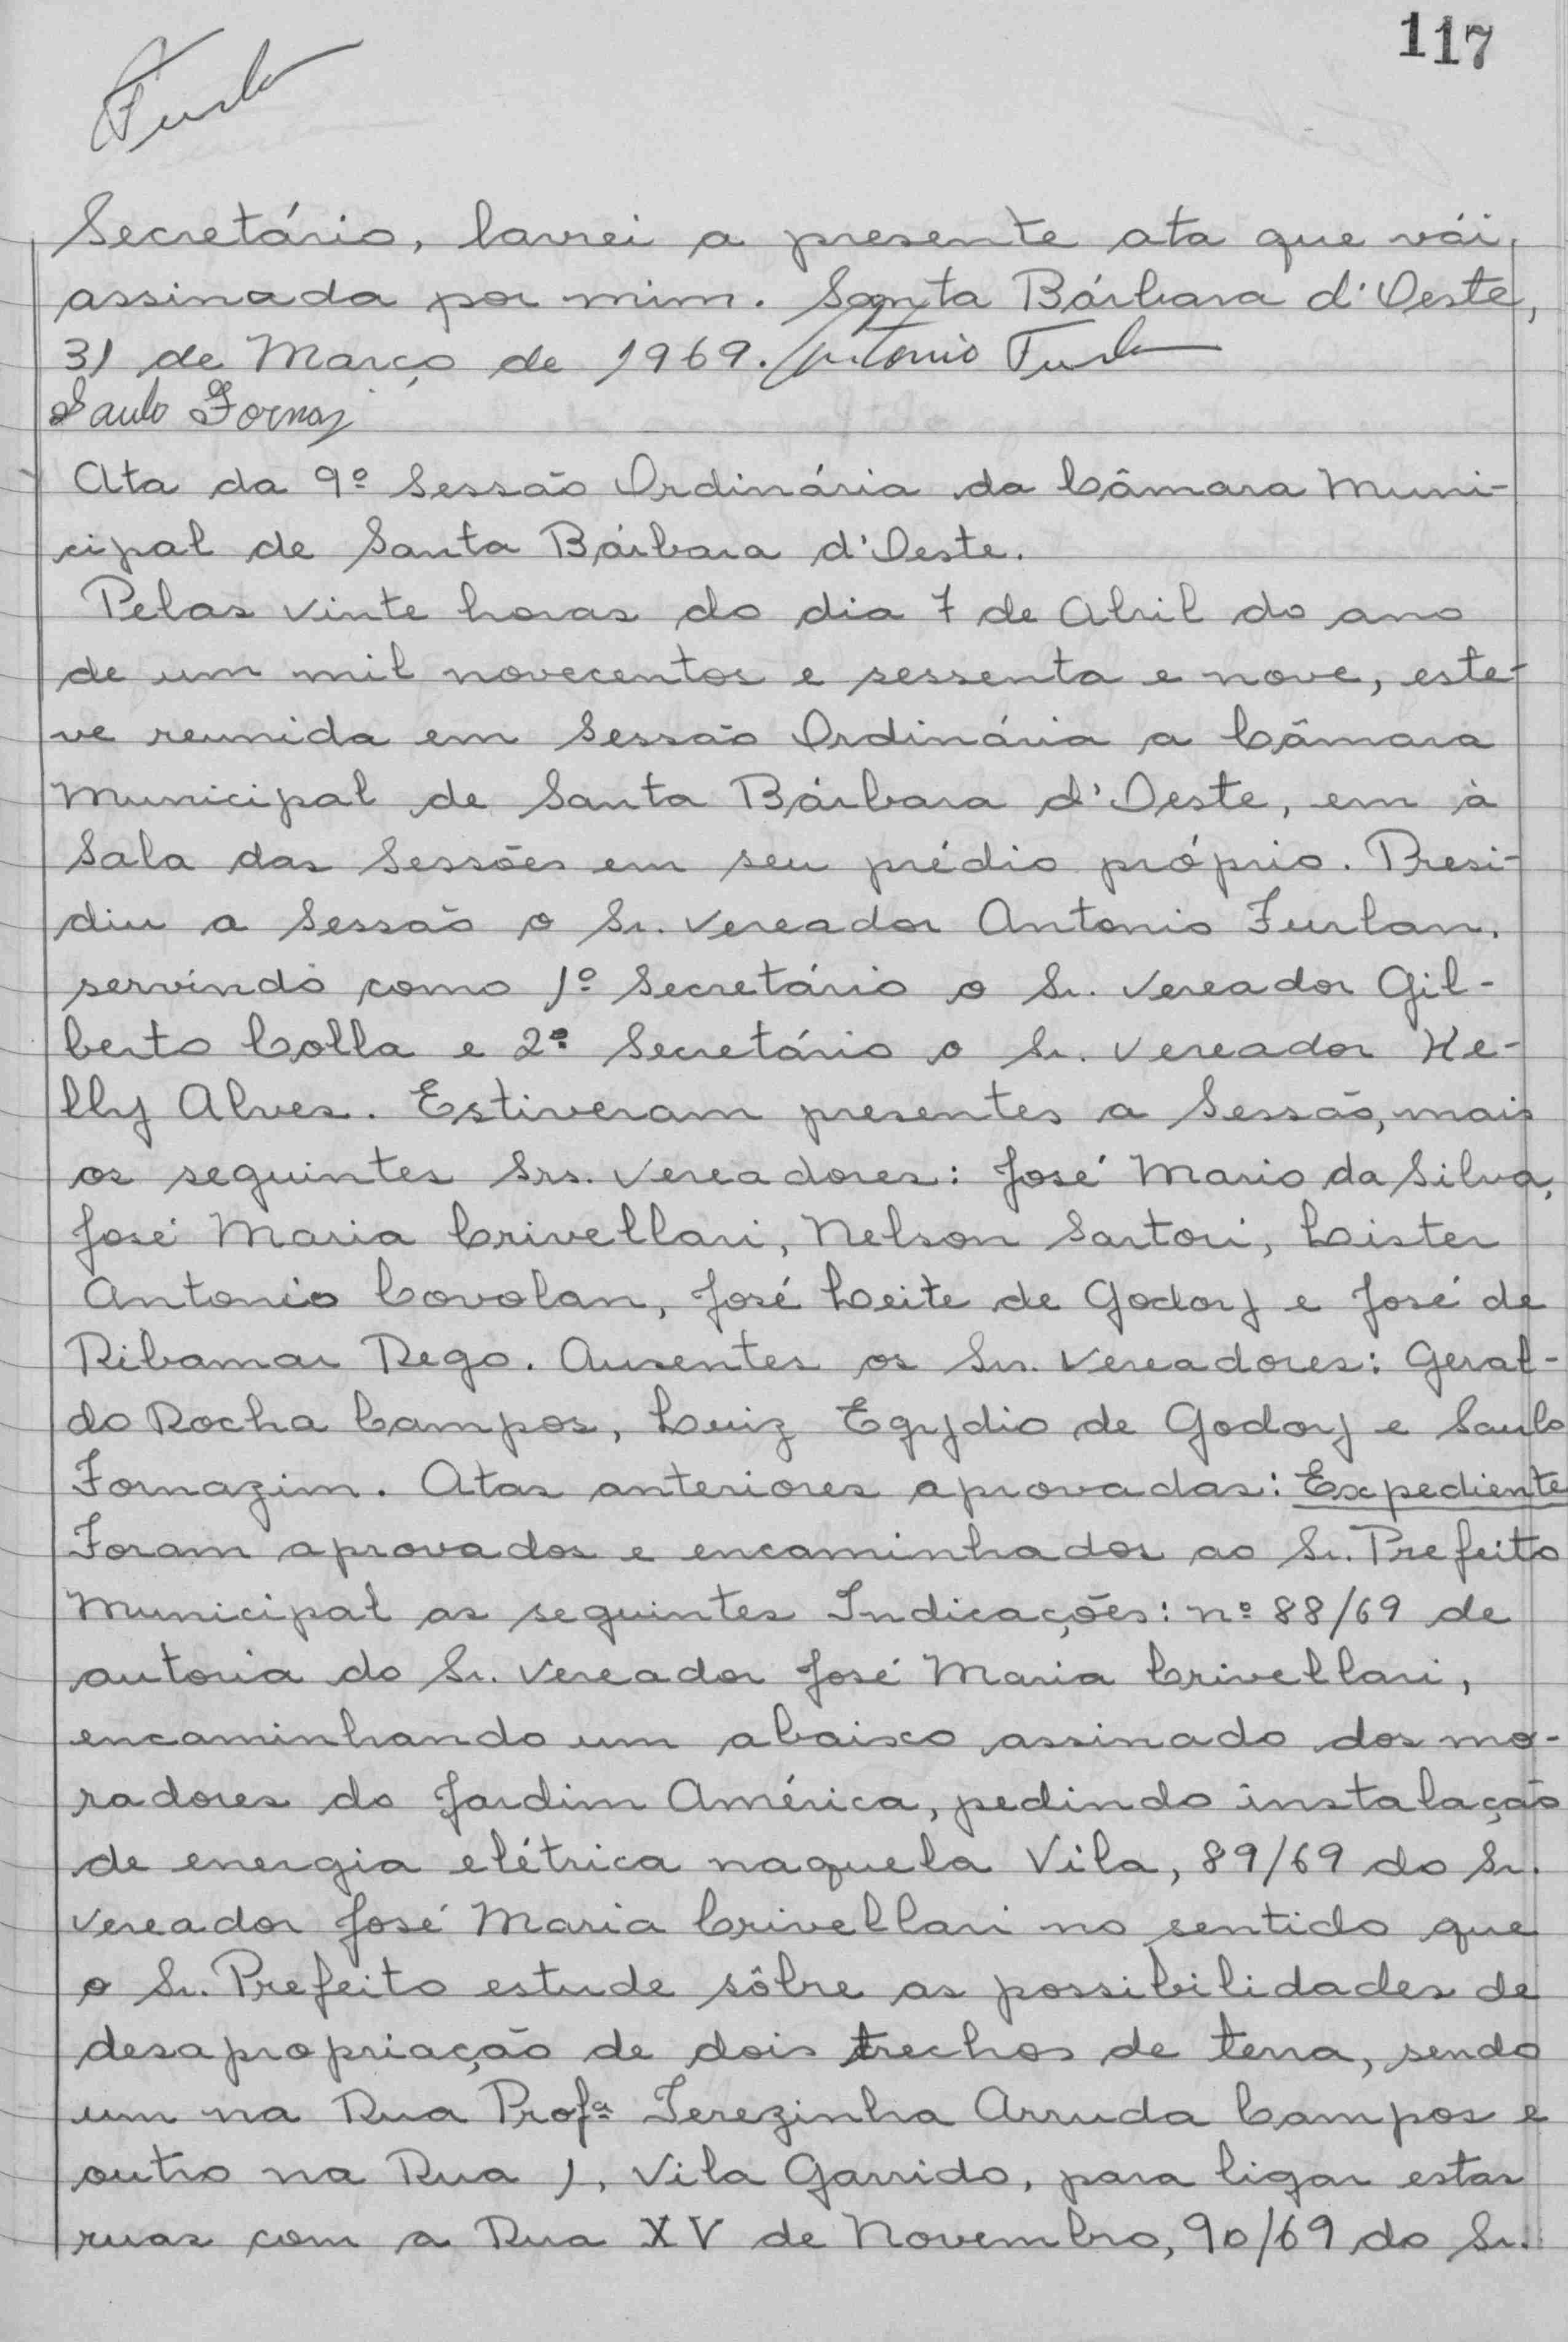 117
Furlan
Secretário, lavrei a presente ata que vái,
assinada por mim. Santa Bárbara d'Oeste,
31 de Março de 1969. Antonio Furlan
Saulo Fornaz
Ata da 9º Sessão Ordinária da Câmara Muni-
cipal de Santa Bárbara d'Oeste.
Pelas vinte horas do dia 7 de Abril do ano
de um mil novecentos e sessenta e nove, este-
ve reunida em Sessão Ordinária a Câmara
Municipal de Santa Bárbara d'Oeste, em à
Sala das Sessões em seu prédio próprio. Presi-
diu a Sessão o Sr. Vereador Antonio Furlan.
servindo como 1º Secretário o Sr. Vereador Gil-
berto Colla e 2º Secretário o Sr. Vereador Ke-
lly Alves. Estiveram presentes a Sessão, mais
os seguintes Srs. Vereadores: José Mario da Silva,
José Maria Crivellari, Nelson Sartori, Lister
Antonio Covolan, José Leite de Godoy e José de
Ribamar Rego. Ausentes os Srs. Vereadores: Geral-
do Rocha Campos, Luiz Egydio de Godoy e Saulo
Fornazim. Atas anteriores aprovadas: Expediente
Foram aprovados e encaminhados ao Sr. Prefeito
Municipal as seguintes Indicações: nº 88/69 de
autoria do Sr. Vereador José Maria Crivellari,
encaminhando um abaixo assinado dos mo-
radores do Jardim América, pedindo instalação
de energia elétrica naquela Vila, 89/69 do Sr.
Vereador José Maria Crivellari no sentido que
o Sr. Prefeito estude sôbre as possibilidades de
desapropriação de dois trechos de terra, sendo
um na Rua Profª Terezinha Arruda Campos e
outro na Rua 1, Vila Garrido, para ligar estas
ruas com a Rua XV de Novembro, 90/69 do Sr.